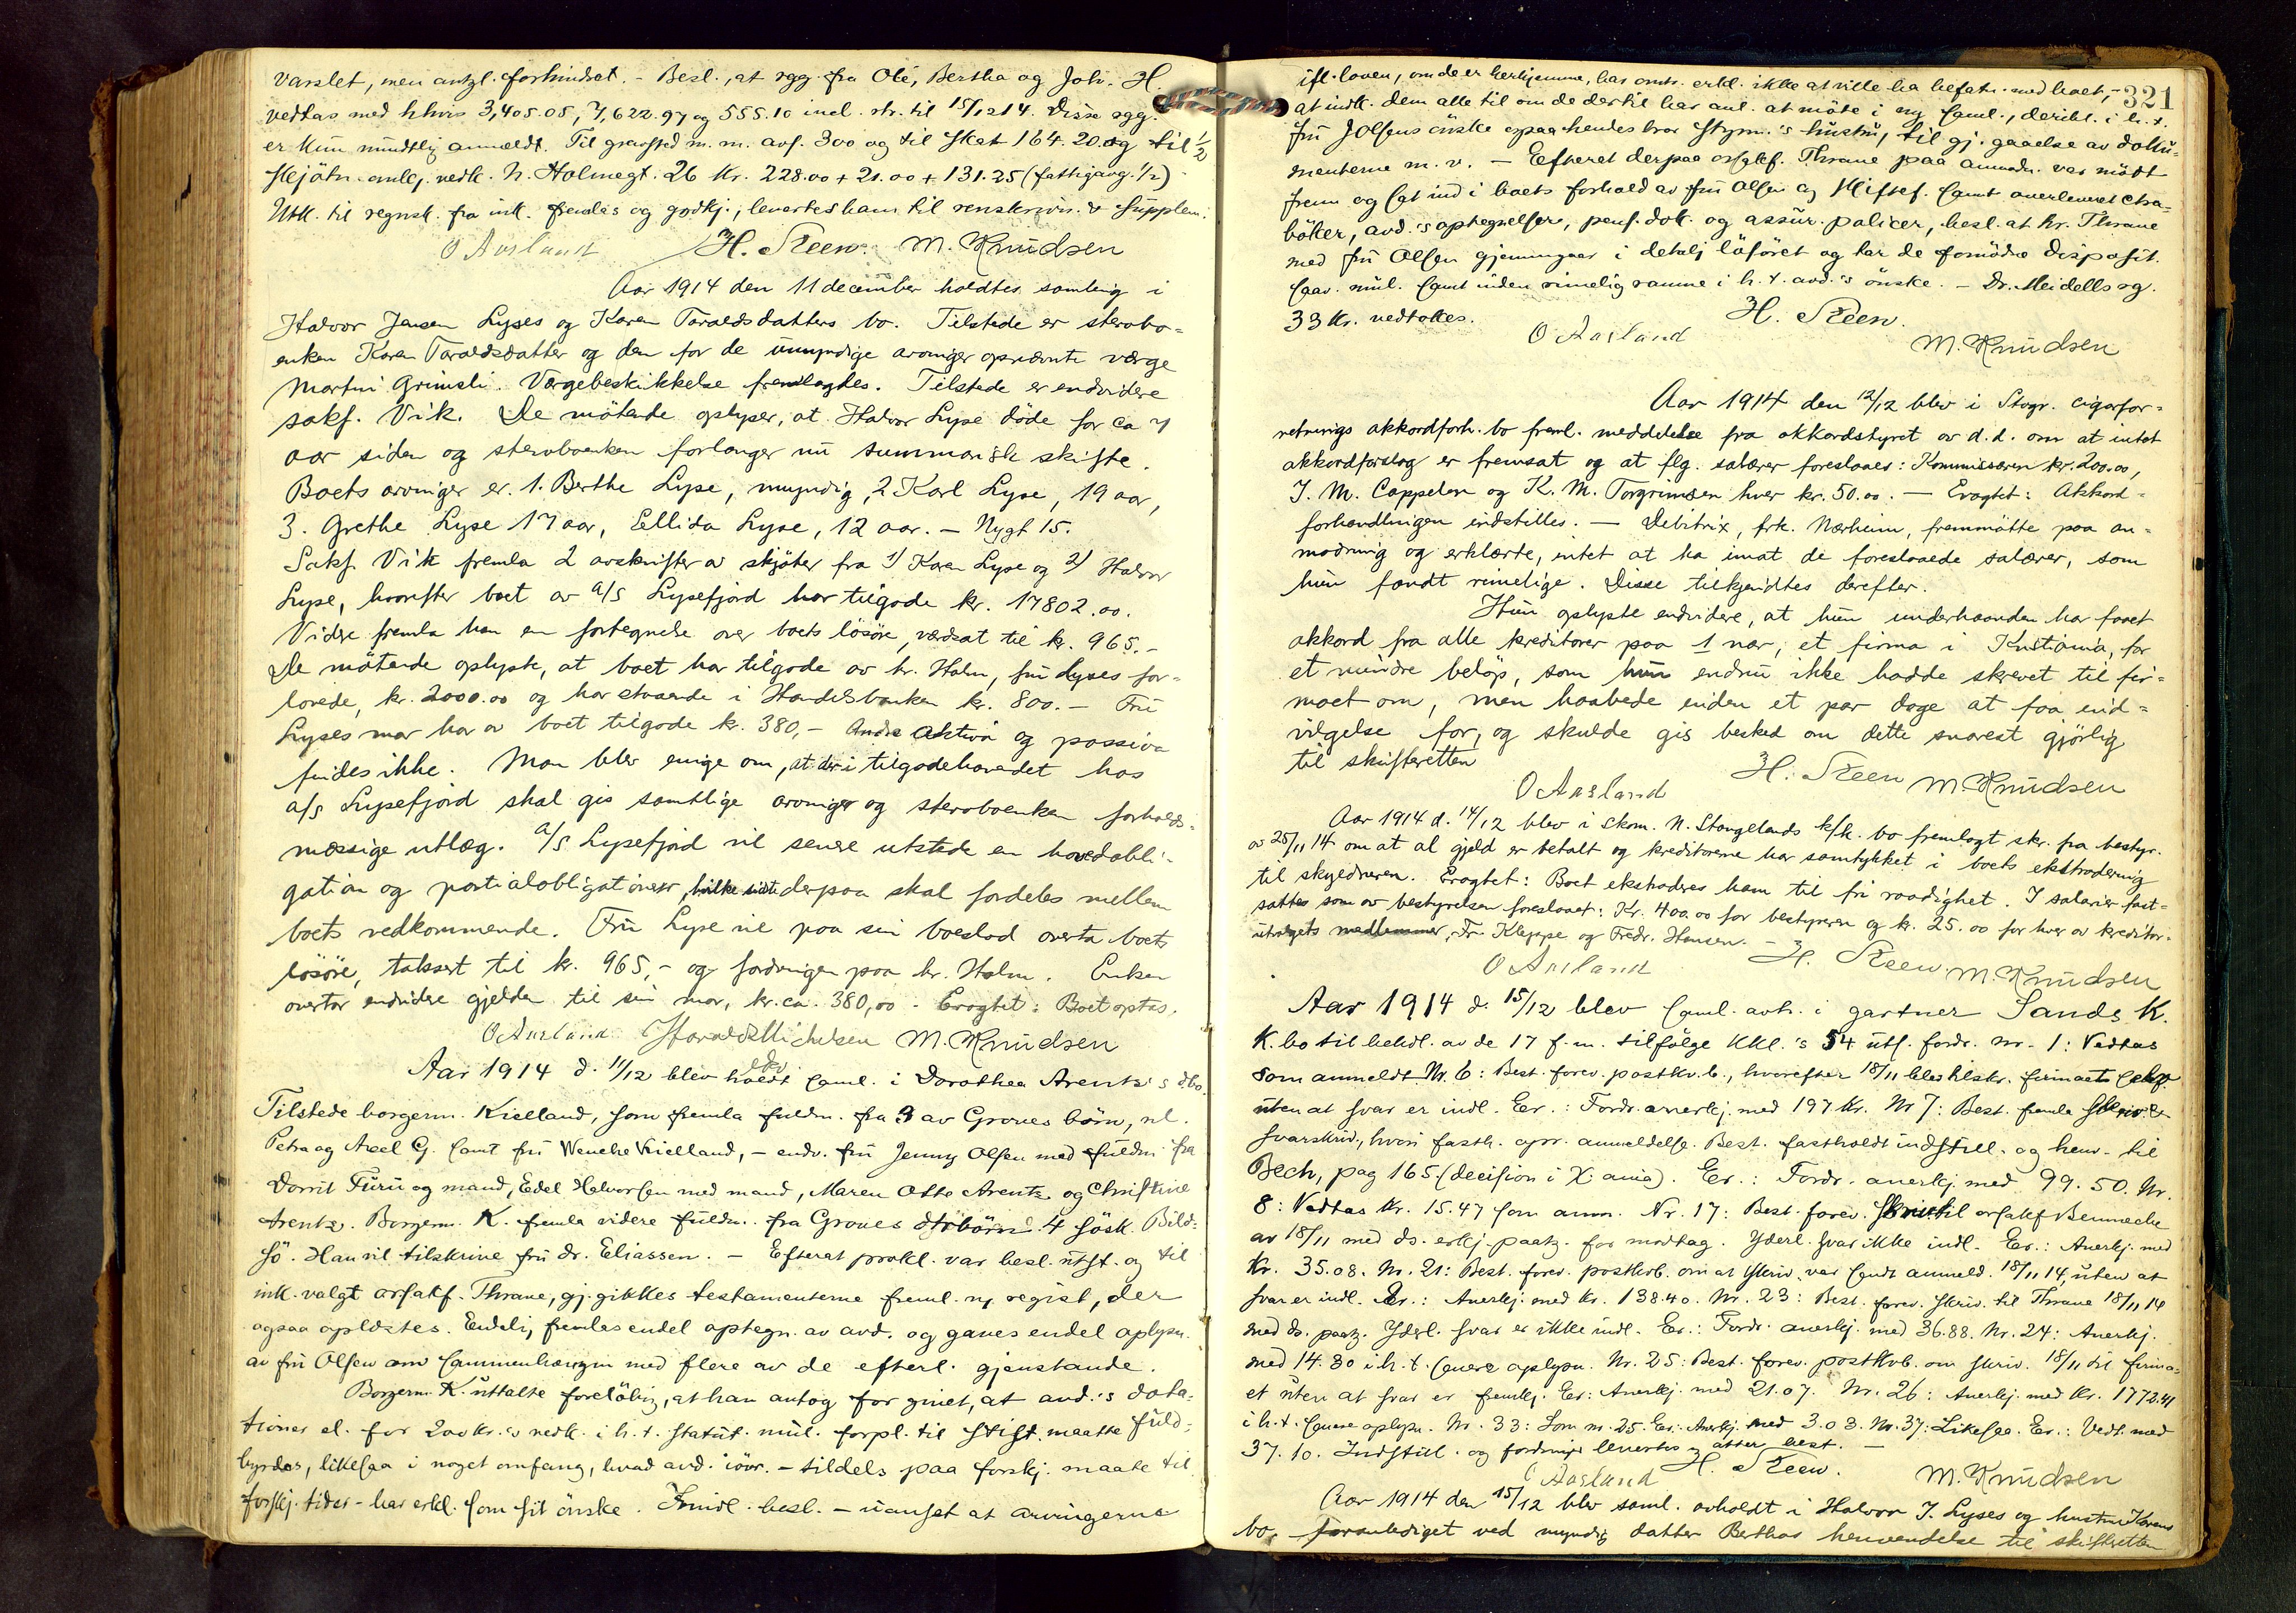 varslet, men antgl. forhindret. - Besl., at rgg fra Ole, Bertha og Joh. H.
vedtas med hhvis 3,405.05, 7,622.97 og 555.10 incl. rtr. til 15/12 14. Disse rgg.
er kun mundtlig anmeldt. Til gravsted m. m. avs. 300 og til skat 164.20 og til 1/2
skjøtn. ankj. vedk. N. Holmegt. 26 Kr. 228.00 + 21.00 + 131.25 (fattigavg. 1/2)
Utk. til regnsk. fra ink. fremles og godkj., levertes ham til renskrivn. & supplem.
O Aasland H. Steen. M. Knudsen
Aar 1914 den 11 december holdtes samling i
Halvor Jensen Lyses og Karen Taraldsdatters bo. Tilstede er stervbo-
enken Karen Taraldsdatter og den for de umyndige arvinger opnævnte værge
Martin Grimsli. Værgebeskikkelse fremlagdes. Tilstede er endvidere
sakf. Vik. De møtende oplyser, at Halvor Lyse døde for ca 7
aar siden og stervboenken forlanger nu summarisk skifte.
Boets arvinger er. 1. Berthe Lyse, myndig, 2 Karl Lyse, 19 aar,
3. Grethe Lyse 17 aar, Ellida Lyse, 12 aar. - Nygt 15.
Sakf. Vik fremla 2 avskrifter av skjøter fra 1) Karen Lyse og 2) Halvor
Lyse, hvorefter boet av A/S Lysefjord har tilgode kr. 17802.00.
Videre fremla han en fortegnelse over boets løsøre, værdsat til kr. 965.-
De møtende oplyste, at boet har tilgode av hr. Holm, fru Lyses for-
lovede, kr. 2000.00 og har staaende i Handelsbanken kr. 800.- Fru
Lyses mor har av boet tilgode kr. 380,- Andre aktiva og passiva
findes ikke. Man blev enige om, at der i tilgodehavendet hos
a/s Lysefjord skal gis samtlige arvinger og stervboenken forholds-
mæssige utlæg. A/S Lysefjord vil senere utstede en hovedobli-
gation og partialobligationer, hvilke sidste derpaa skal fordeles mellem
boets vedkommende. Fru Lyse vil paa sin boeslod overta boets
løsøre, taksert til kr. 965,- og fordringen paa hr. Holm. Enken
overtar endvidere gjelden til sin mor, kr. ca. 380,00 - Eragtet: Boet optas.
O Aasland Harald Michelsen M. Knudsen
Aar 1914 d. 11/12 blev holdt saml. i Dorothea Arentz's dbo.
Tilstede borgerm. Kielland, som fremla fuldm. fra 3 av Groves børn, nl.
Petra og Axel G. samt fru Wenche Kielland, - endv. fru Jenny Olsen med fuldm. fra
Dorrit Furu og mand, Edel Halvorsen med mand, Maren Otte Arentz og Christine
Arentz. Borgerm. K. fremla videre fuldm. fra Groves 4 søsk. Bild-
sø. Han vil tilskrive fru dr. Eliassen. - Efterat prokl. var besl. utst. og til
ink. valgt orsakf. Thrane, gj.gikkes testamenterne freml. ny regist, der
ogsaa oplæstes. Endelig fremles endel optegn. av avd. og gaves endel oplysn.
av fru Olsen om sammenhængen med flere av de efterl. gjenstande.
Borgerm. K. uttalte foreløbig, at han antog for givet, at avd.'s dota-
tioner el. for 200 kr.'s vedk. i h. t. statut. mul. forpl. til stift. maatte fuld-
byrdes, likesaa i noget omfang, hvad avd. iøvr. - tildels paa forskj. maate til
forskj. tider - har erkl. som sit ønske. Imidl. besl. - uanset at arvingerne
321
ifl. loven, om de er herhjemme, har omtr. erkl. ikke at ville ha befatn. med boet, -
at indk. dem alle til om de dertil har anl. at møte i ny saml., derikt. i h. t.
fru J Olsens ønske ogsaa hendes bror styrm.'s hustru, til gj.gaaelse av doku-
menterne m. v. - Efterat derpaa orsakf. Thrane paa anmodn. var mødt
frem og sat ind i boets forhold av fru Olsen og skiftef. samt overleveret cha-
bøtter, avd.'s optegnelser, pens. dok. og assur. policer, besl. at hr. Thrane
med fru Olsen gjennemgaar i detalj løsøret og tar de fornødne disposit.
saav. mul. samt inden rimelig ramme i h. t. avd.'s ønske. - Dr. Meidells rg.
33 kr. vedtokes.
O Aasland H. Steen. M. Knudsen
Aar 1914 den 12/12 blev i Stvgr. cigarfor-
retnings akkordforh. bo freml. meddelelse fra akkordstyret av d. d. om at intet
akkordforslag er fremsat og at flg. salærer foreslaaes: Kommissæren kr. 200.00,
J. M. Cappelen og K. M. Torgrimsen hver kr. 50.00. - Eragtet: Akkord-
forhandlingen indstilles. - Debitrix, frk. Nærheim, fremmøtte paa an-
modning og erklærte, intet at ha imot de foreslaaede salærer, som
hun fandt rimelige. Disse tilkjendtes derefter.
Hun oplyste endvidere, at hun underhaanden har faaet
akkord fra alle kreditorer paa 1 nær, et firma i Kristiania, for
et mindre beløp, som hun endnu ikke hadde skrevet til fir-
maet om, men haabede inden et par dage at faa ind-
vilgelse for, og skulde gis besked om dette snarest gjørlig
til skifteretten
O Aasland H. Steen M. Knudsen
Aar 1914 d. 14/12 blev i skom. N. Stangelands k/k. bo fremlagt skr. fra bestyr.
av 28/11 14 om at al gjeld er betalt og kreditorerne har samtykket i boets ekstradering
til skyldneren. Eragtet: Boet ekstraderes ham til fri raadighet. I salærer fast-
sattes som av bestyrelsen foreslaaet: Kr. 400.00 for bestyreren og kr. 25.00 for hver av kreditor-
utvalgets medlemmer, Fr. Kleppe og Fredr. Hansen. -
O Aasland H. Steen. M. Knudsen
Aar 1914 d. 15/12 blev saml. avh. i gartner Sands K.
K. bo til behdl. av de 17 f. m. tilfølge KKl.'s 54 uts. fordr. Nr. 1: Vedtas
som anmeldt Nr. 6: Best. forev. postkv. b., hvorefter 18/11 blev tilskr. firmaet
uten at svar er indl. Er.: Fordr. anerkj. med 197 Kr. Nr 7: Best. fremla skriv. &
svarskriv., hvori fasth. opr. anmeldelse. Best. fastholdt indstill. og henv. til
Bech, pag 165 (decision i X.ania). Er.: Fordr. anerkj. med 99.50. Nr.
8: Vedtas Kr. 15.47 som anm. Nr. 17: Best. forev. skriv. til orsakf Benneche
av 18/11 med ds. erkj. paatg. for modtag. Yderl. svar ikke indl. Er.: Anerkj. med
Kr. 35.08. Nr. 21: Best. forev. postkvb. om at skriv. var sendt anmeld. 18/11 14, uten at
svar er indl. Er.: Anerkj. med Kr. 138.40. Nr. 23: Best. forev. skriv. til Thrane 18/11 14
med ds. paatg. Yderl. svar er ikke indl. Er.: Fordr. anerkj. med 36.88. Nr. 24: Anerkj.
med 14.80 i h. t. senere oplysn. Nr. 25: Best. forev. postkvb. om skriv. 18/11 til firma-
et uten at svar er fremkj. Er: Anerkj. med 21.07. Nr. 26: Anerkj. med Kr. 1772.41
i h. t. senere oplysn. Nr. 33: Som nr. 25. Er: Anerkj. med 3.03. Nr. 37: Likesaa. Er.: Vedt. med
37.10. Indstill. og fordringer levertes atter best. -
O Aasland H. Steen. M. Knudsen
Aar 1914 den 15/12 blev saml. avholdt i Halvor J. Lyses og hustru Karens
bo, foranlediget ved myndig datter Berthas henvendelse til skifteretten